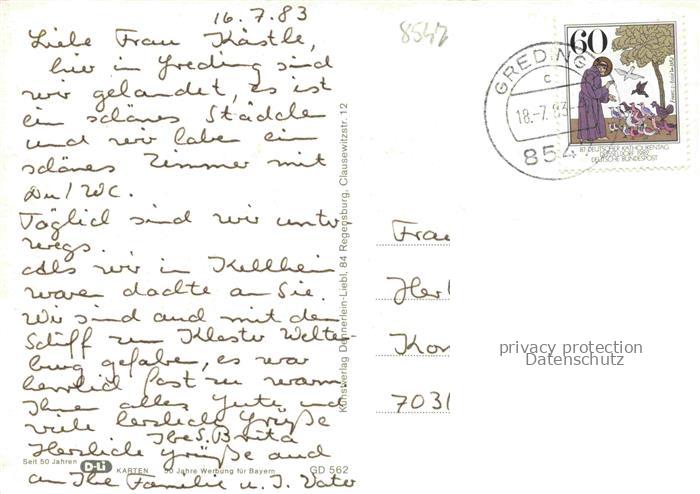 16.7.83
Liebe Frau Kästle,
hier in Greding sind
wir gelandet, es ist
ein schönes Städtchen
und wir haben ein
schönes Zimmer mit
Du/WC.
Täglich sind wir unter-
wegs.
Als wir in Kellhein
waren dachte an Sie.
Wir sind auch mit dem
Schiff zum Kloster Welten-
burg gefahren, es war
herrlich fast zu warm
Ihnen alles Gute und
viele herzliche Grüße
Ihre S. Brita
Herzliche Grüße auch
an Ihre Familie u. I. Vater
Seit 50 Jahren D-Li KARTEN 50 Jahre Werbung für Bayern GD 562
Kunstverlag Dennerlein-Liebl, 84 Regensburg, Clausewitzstr. 12
8547
GREDING
c
18.-7.83
854
60
87. DEUTSCHER KATHOLIKENTAG
DÜSSELDORF 1982
DEUTSCHE BUNDESPOST
Frau
Her
Kor
7031
privacy protection
Datenschutz